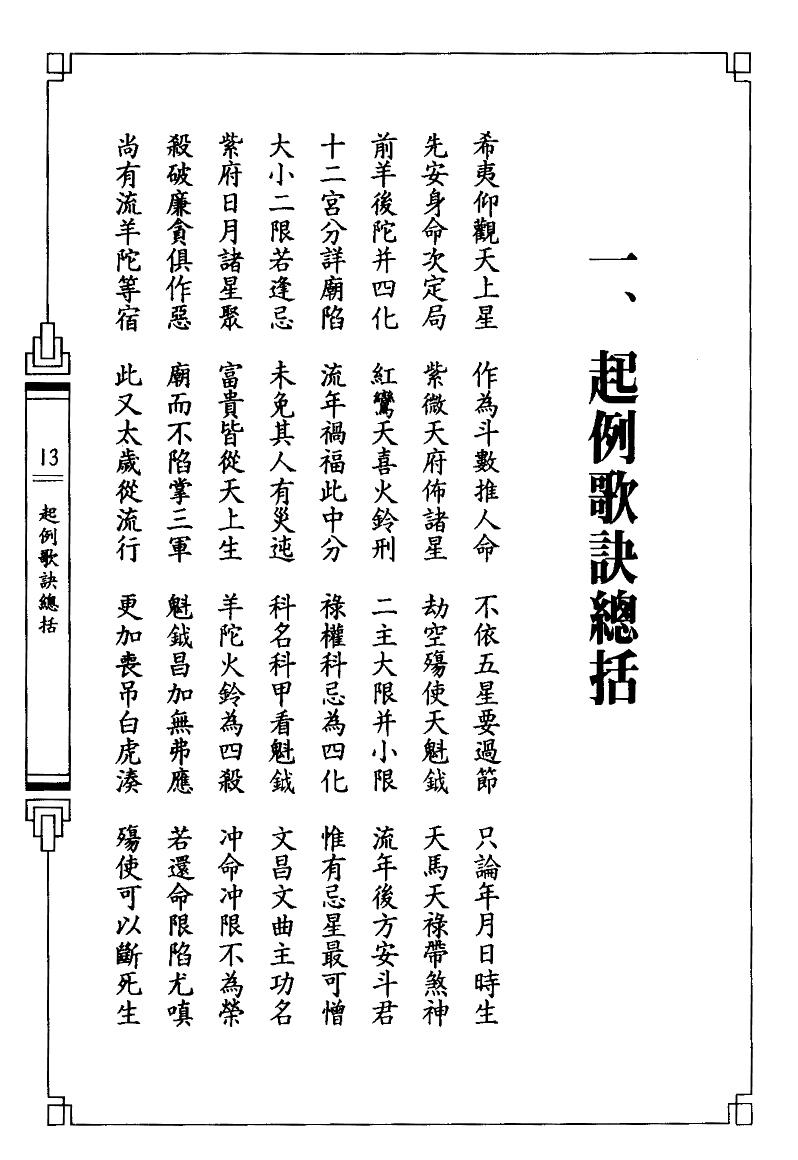 一、起例歌訣總括
希夷仰觀天上星 作為斗數推人命 不依五星要過節 只論年月日時生
先安身命次定局 紫微天府佈諸星 劫空殤使天魁鉞 天馬天祿帶煞神
前羊後陀并四化 紅鸞天喜火鈴刑 二主大限并小限 流年後方安斗君
十二宮分詳廟陷 流年禍福此中分 祿權科忌為四化 惟有忌星最可憎
大小二限若逢忌 未免其人有災迍 科名科甲看魁鉞 文昌文曲主功名
紫府日月諸星聚 富貴皆從天上生 羊陀火鈴為四殺 冲命冲限不為榮
殺破廉貪俱作惡 廟而不陷掌三軍 魁鉞昌加無弗應 若還命限陷尤嗔
尚有流羊陀等宿 此又太歲從流行 更加喪吊白虎湊 殤使可以斷死生
13
起例歌訣總括